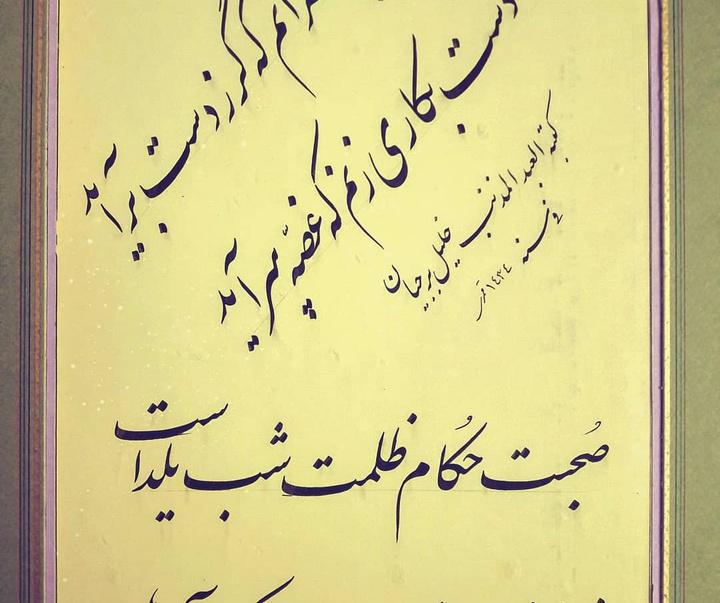 آنم که گر ز دست برآید
دست بکاری زنم که غصّه سرآید
کتبه العبد المذنب خلیل برجیان
فی سنه ۱۴۳۴
صُحبت حُکام ظلمت شب یلداست